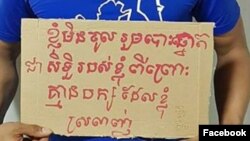 ខ្ញុំមិនចូលរួមបោះឆ្នោត
ជា សិទ្ធិ របស់ខ្ញុំ ពីព្រោះ
គ្មានបក្ស ដែលខ្ញុំ
ស្រលាញ់
Facebook